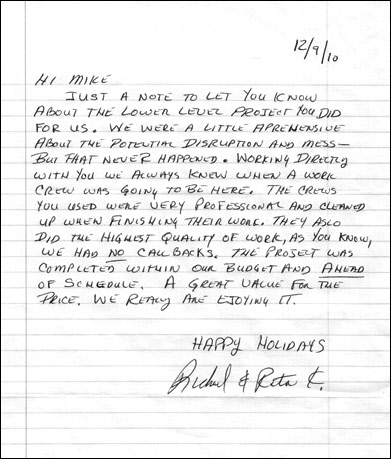 12/9/10
HI MIKE
JUST A NOTE TO LET YOU KNOW
ABOUT THE LOWER LEVEL PROJECT YOU DID
FOR US. WE WERE A LITTLE APREHENSIVE
ABOUT THE POTENTIAL DISRUPTION AND MESS—
BUT THAT NEVER HAPPENED. WORKING DIRECTLY
WITH YOU WE ALWAYS KNEW WHEN A WORK
CREW WAS GOING TO BE HERE. THE CREWS
YOU USED WERE VERY PROFESSIONAL AND CLEANED
UP WHEN FINISHING THEIR WORK. THEY ASLO
DID THE HIGHEST QUALITY OF WORK, AS YOU KNOW,
WE HAD NO CALLBACKS. THE PROJECT WAS
COMPLETED WITHIN OUR BUDGET AND AHEAD
OF SCHEDULE. A GREAT VALUE FOR THE
PRICE. WE REALLY ARE EJOYING IT.
HAPPY HOLIDAYS
Richard & Reta K.